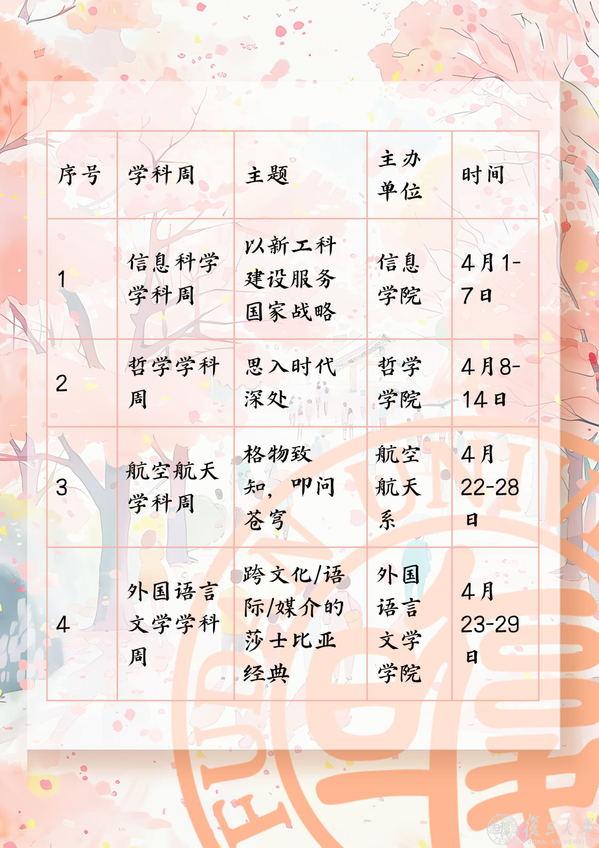 序号 学科周 主题 主办单位 时间
1 信息科学学科周 以新工科建设服务国家战略 信息学院 4月1-7日
2 哲学学科周 思入时代深处 哲学学院 4月8-14日
3 航空航天学科周 格物致知，叩问苍穹 航空航天系 4月22-28日
4 外国语言文学学科周 跨文化/语际/媒介的莎士比亚经典 外国语言文学学院 4月23-29日
复旦大学